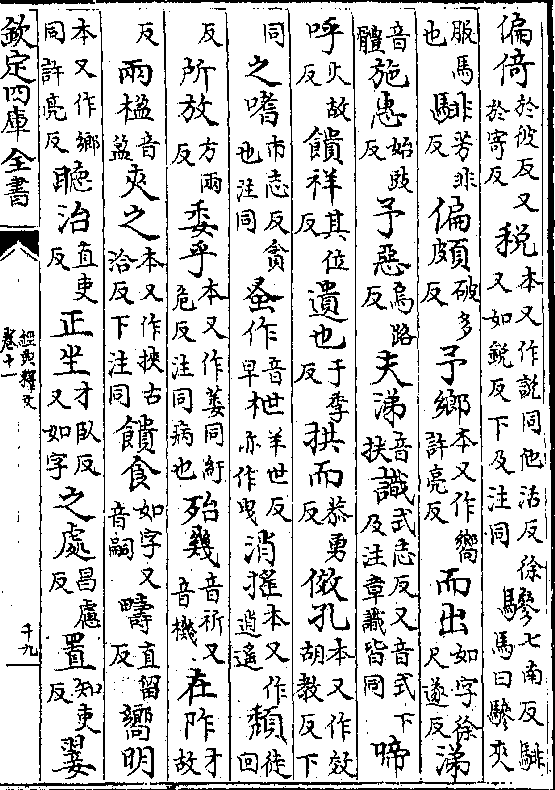 偏倚於彼反又於寄反税本又作說同他活反徐又如鋭反下及注同驂七南反騑馬曰驂夾
服馬也騑芳非反偏頗破多反予鄉本又作嚮許亮反而出如字徐尺遂反涕
音體施惠始豉反予惡烏路反夫涕音扶識式志反又音式下及注章識皆同啼
呼火故反饋祥其位反遺也于季反拱而恭勇反傚孔本又作效胡教反下
同之嗜市志反貪也注同蚤作音早杝羊世反亦作曳消摇本又作逍遥頽徒回
反所放方兩反委乎本又作萎同紆危反注同病也殆幾音祈又音機在阼才故
反兩楹音盈夾之本又作挾古洽反下注同饋食如字又音嗣疇直留反嚮明
本又作鄉同許亮反聽治直吏反正坐才臥反又如字之處昌慮反置知吏反翣
欽定四庫全書
經典釋文
卷十一
十九